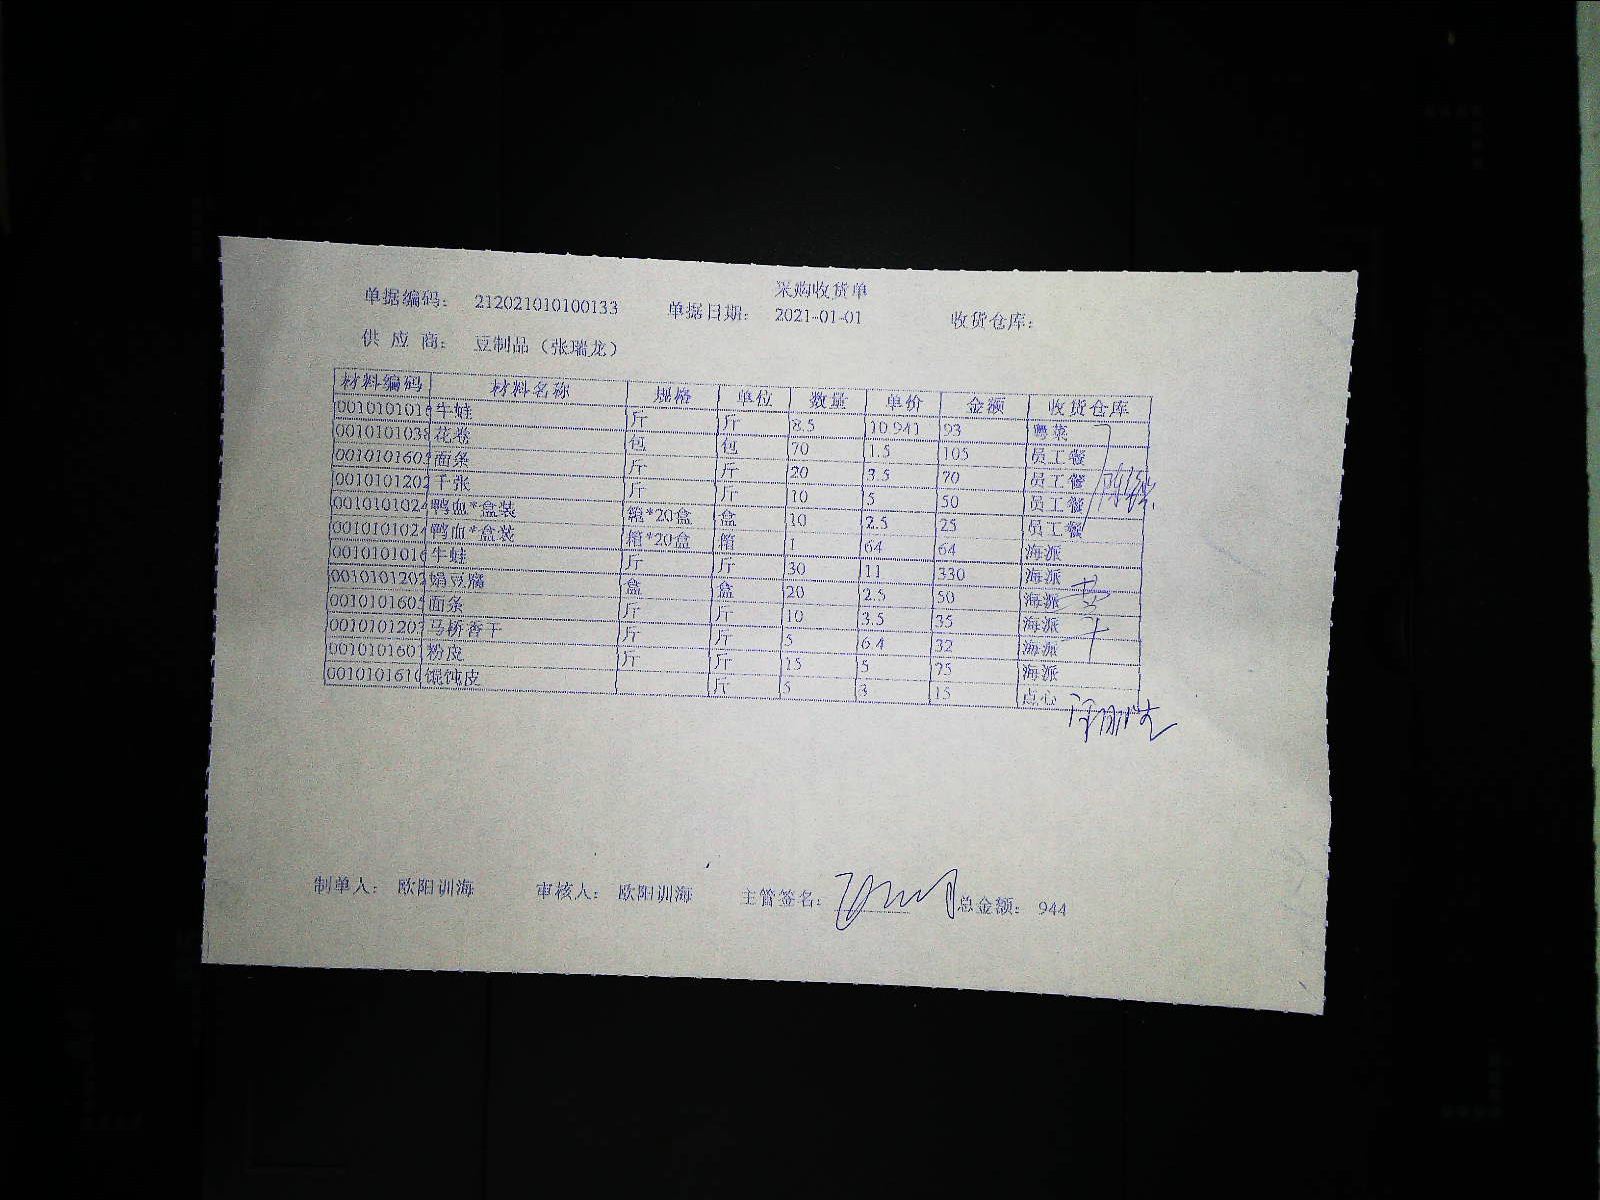 采购收货单
单据编码: 212021010100133 单据日期: 2021-01-01 收货仓库:
供 应 商: 豆制品（张瑞龙）
材料编码 材料名称 规格 单位 数量 单价 金额 收货仓库
001010101 牛蛙 斤 斤 8.5 10.941 93 粤菜
001010103 花卷 包 包 70 1.5 105 员工餐
001010160 面条 斤 斤 20 3.5 70 员工餐
0010101202 千张 斤 斤 10 5 50 员工餐
001010102 鸭血*盒装 箱*20盒 盒 10 2.5 25 员工餐
001010102 鸭血*盒装 箱*20盒 箱 1 64 64 海派
001010101 牛蛙 斤 斤 30 11 330 海派
001010120 绢豆腐 盒 盒 20 2.5 50 海派
001010160 面条 斤 斤 10 3.5 35 海派
001010120 马桥香干 斤 斤 5 6.4 32 海派
001010160 粉皮 斤 斤 15 5 75 海派
001010161 馄饨皮 斤 5 3 15 点心
制单人: 欧阳训海 审核人: 欧阳训海 主管签名: 总金额: 944